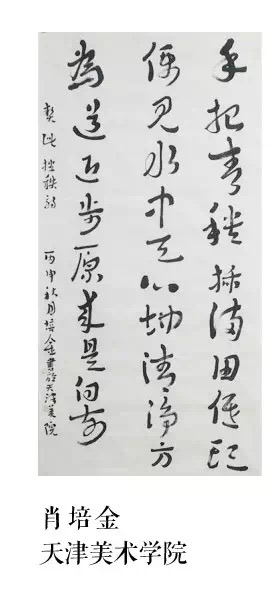 手把青秧插滿田低頭
便見水中天心地清淨方
為道退步原來是向前
契此 插秧詩 丙申秋月培金書於天津美院
肖培金
天津美术学院